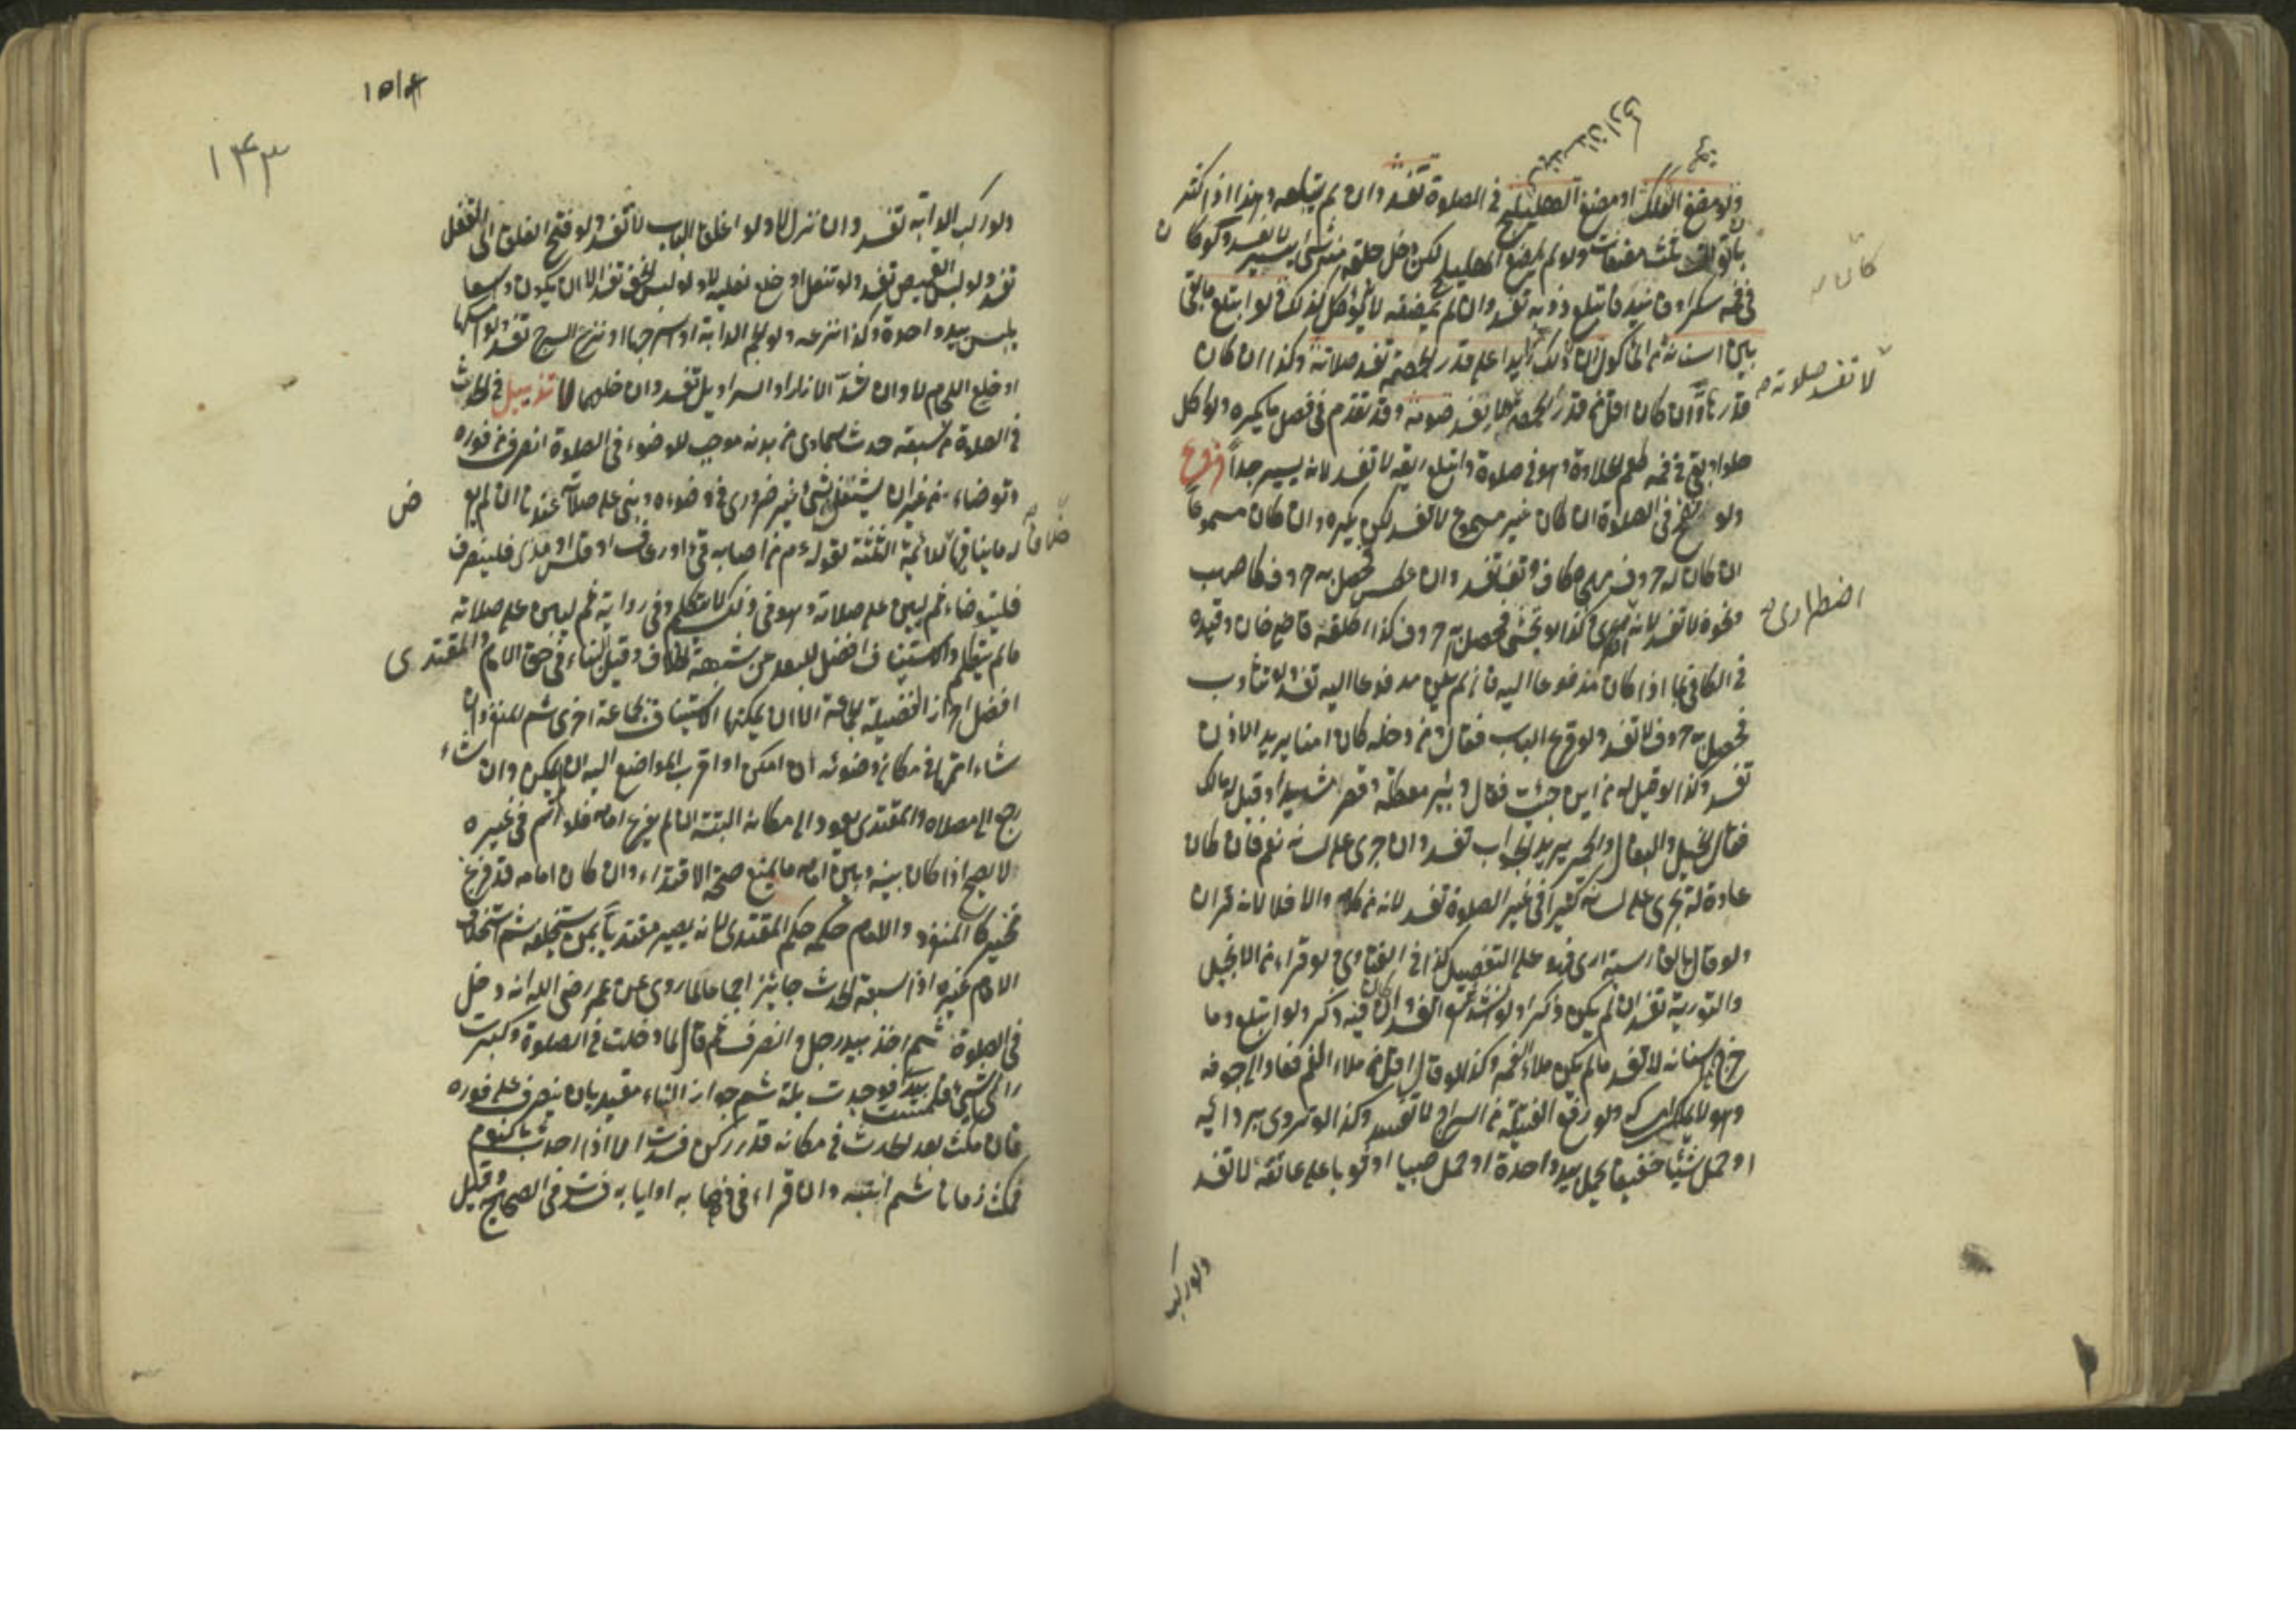 ولو مضغ العلك او مضغ الهليلج في الصلوة تفسد وان لم يبتلعه وهذا اذا كثر
بان توالت ثلث مضغات ولو لم يمضغ الهليلج لكن دخل حلقه منه شئ يسير لا تفسد ولو كان
في فمه سكر او فانيد فابتلع ذوبه تفسد وان لم يمضغه ولو ابتلع ما بقي
بين اسنانه من المأكول ان كان ذلك زايدا على قدر الحمصة تفسد صلاته وكذا ان كان
قدرها وان كان اقل من قدر الحمصة وقد تقدم في فصل ما يكره ولو اكل
حلوا وبقي في فمه طعم الحلاوة وهو في صلوة وابتلع ريقه لا تفسد لانه يسير جدا فروع
ولو نفخ في الصلوة ان كان غير مسموع لا تفسد لكن يكره وان كان مسموعا
ان كان له حروف مهجاة كاف وتف تفسد وان عطس فحصل به حروف
ونحوه لا تفسد لانه وكذا لو تجشى فحصل به حروف كذا اطلقه قاضي خان وقيده
في الكافي بما اذا كان مدفوعا اليه فان لم يكن مدفوعا اليه تفسد ولو تثاوب
فحصل به حروف لا تفسد ولو قرع الباب فقال ومن دخله كان امنا يريد الاذن
تفسد وكذا لو قيل له من اين جئت فقال وبئر معطلة وقصر مشيد او قيل له ما لك
فقال الخيل والبغال والحمير يريد الجواب تفسد وان جرى على لسانه نعم فان كان
عادة له تجرى على لسانه كثيرا في غير الصلوة تفسد لانه من كلامه والا فلا لانه قران
ولو قال بالفارسية ارى فهو على التفصيل كذا في الفتاوى ولو قراء من الانجيل
والتورية تفسد ان لم يكن ذكرا ولو انشد شعرا تفسد ان كان فيه ذكر ولو ابتلع دما
خرج من اسنانه لا تفسد ما لم يكن ملاء الفم وكذا لو قاء اقل من ملاء الفم فعاد الى جوفه
وهو لا يملك امساكه ولو رفع الفتيلة من السراج لا تفسد وكذا لو تردى بردائه
او حمل شيئا خفيفا يحمل بيد واحدة او حمل صبيا او ثوبا على عاتقه لا تفسد
كان
لا تفسد صلوته
اضطرارى
ولو ركب
١٤٣
ولو ركب الدابة تفسد وان نزل لا ولو اغلق الباب لا تفسد ولو فتح الغلق او القفل
تفسد ولو لبس القميص تفسد ولو تنعل او خلع نعليه لا ولو لبس الخف تفسد الا ان يكون واسعا
يلبس بيد واحدة وكذا نزعه ولو الجم الدابة او اسرجها او نزع السرج تفسد
او خلع اللجام لا وان شد الازار او السراويل تفسد وان خلعهما لا تذييل في الحدث
في الصلوة من سبقه حدث سماوى من بدنه موجب للوضوء في الصلوة انصرف من فوره
وتوضاء من غير ان يشتغل بشئ غير ضرورى في وضوءه وبنى على صلاته عندنا ان لم يعرض
له ما ينافيها خلافا للائمة الثلثة لقوله عم من اصابه قئ او رعاف او قلس او مذى فلينصرف
فليتوضاء ثم ليبن على صلاته وهو في ذلك لا يتكلم وفي رواية ثم ليبن على صلاته
ما لم يتكلم والاستيناف افضل للبعد عن شبهة الخلاف وقيل البناء في حق الامام والمقتدى
افضل احرازا لفضيلة الجماعة الا ان يمكنهما الاستيناف بجماعة اخرى ثم المنفرد ان
شاء اتمها في مكان وضوئه ان امكن او اقرب المواضع اليه ان لم يمكن وان شاء
رجع الى مصلاه والمقتدى يعود الى مكانه البتة ان لم يفرغ امامه فلو اتم في غيره
لا يصح اذا كان بينه وبين امامه ما يمنع صحة الاقتداء وان كان امامه قد فرغ
تخير كالمنفرد والامام حكمه حكم المقتدى لانه يصير مقتديا بمن يستخلفه ثم استخلاف
الامام غيره اذا سبقه الحدث جايز اجماعا لما روى عن عمر رضى الله انه دخل
في الصلوة ثم اخذ بيد رجل وانصرف ثم قال لما دخلت في الصلوة وكبرت
رابني شئ فلمست بيدى فوجدت بلة ثم جواز البناء مقيد بان ينصرف على فوره
فان مكث بعد الحدث في مكانه قدر ركن فسدت الا اذا احدث بالنوم
فمكث زمانا ثم انتبه وان قراء في ذهابه او ايابه فسدت في الصحيح وقيل